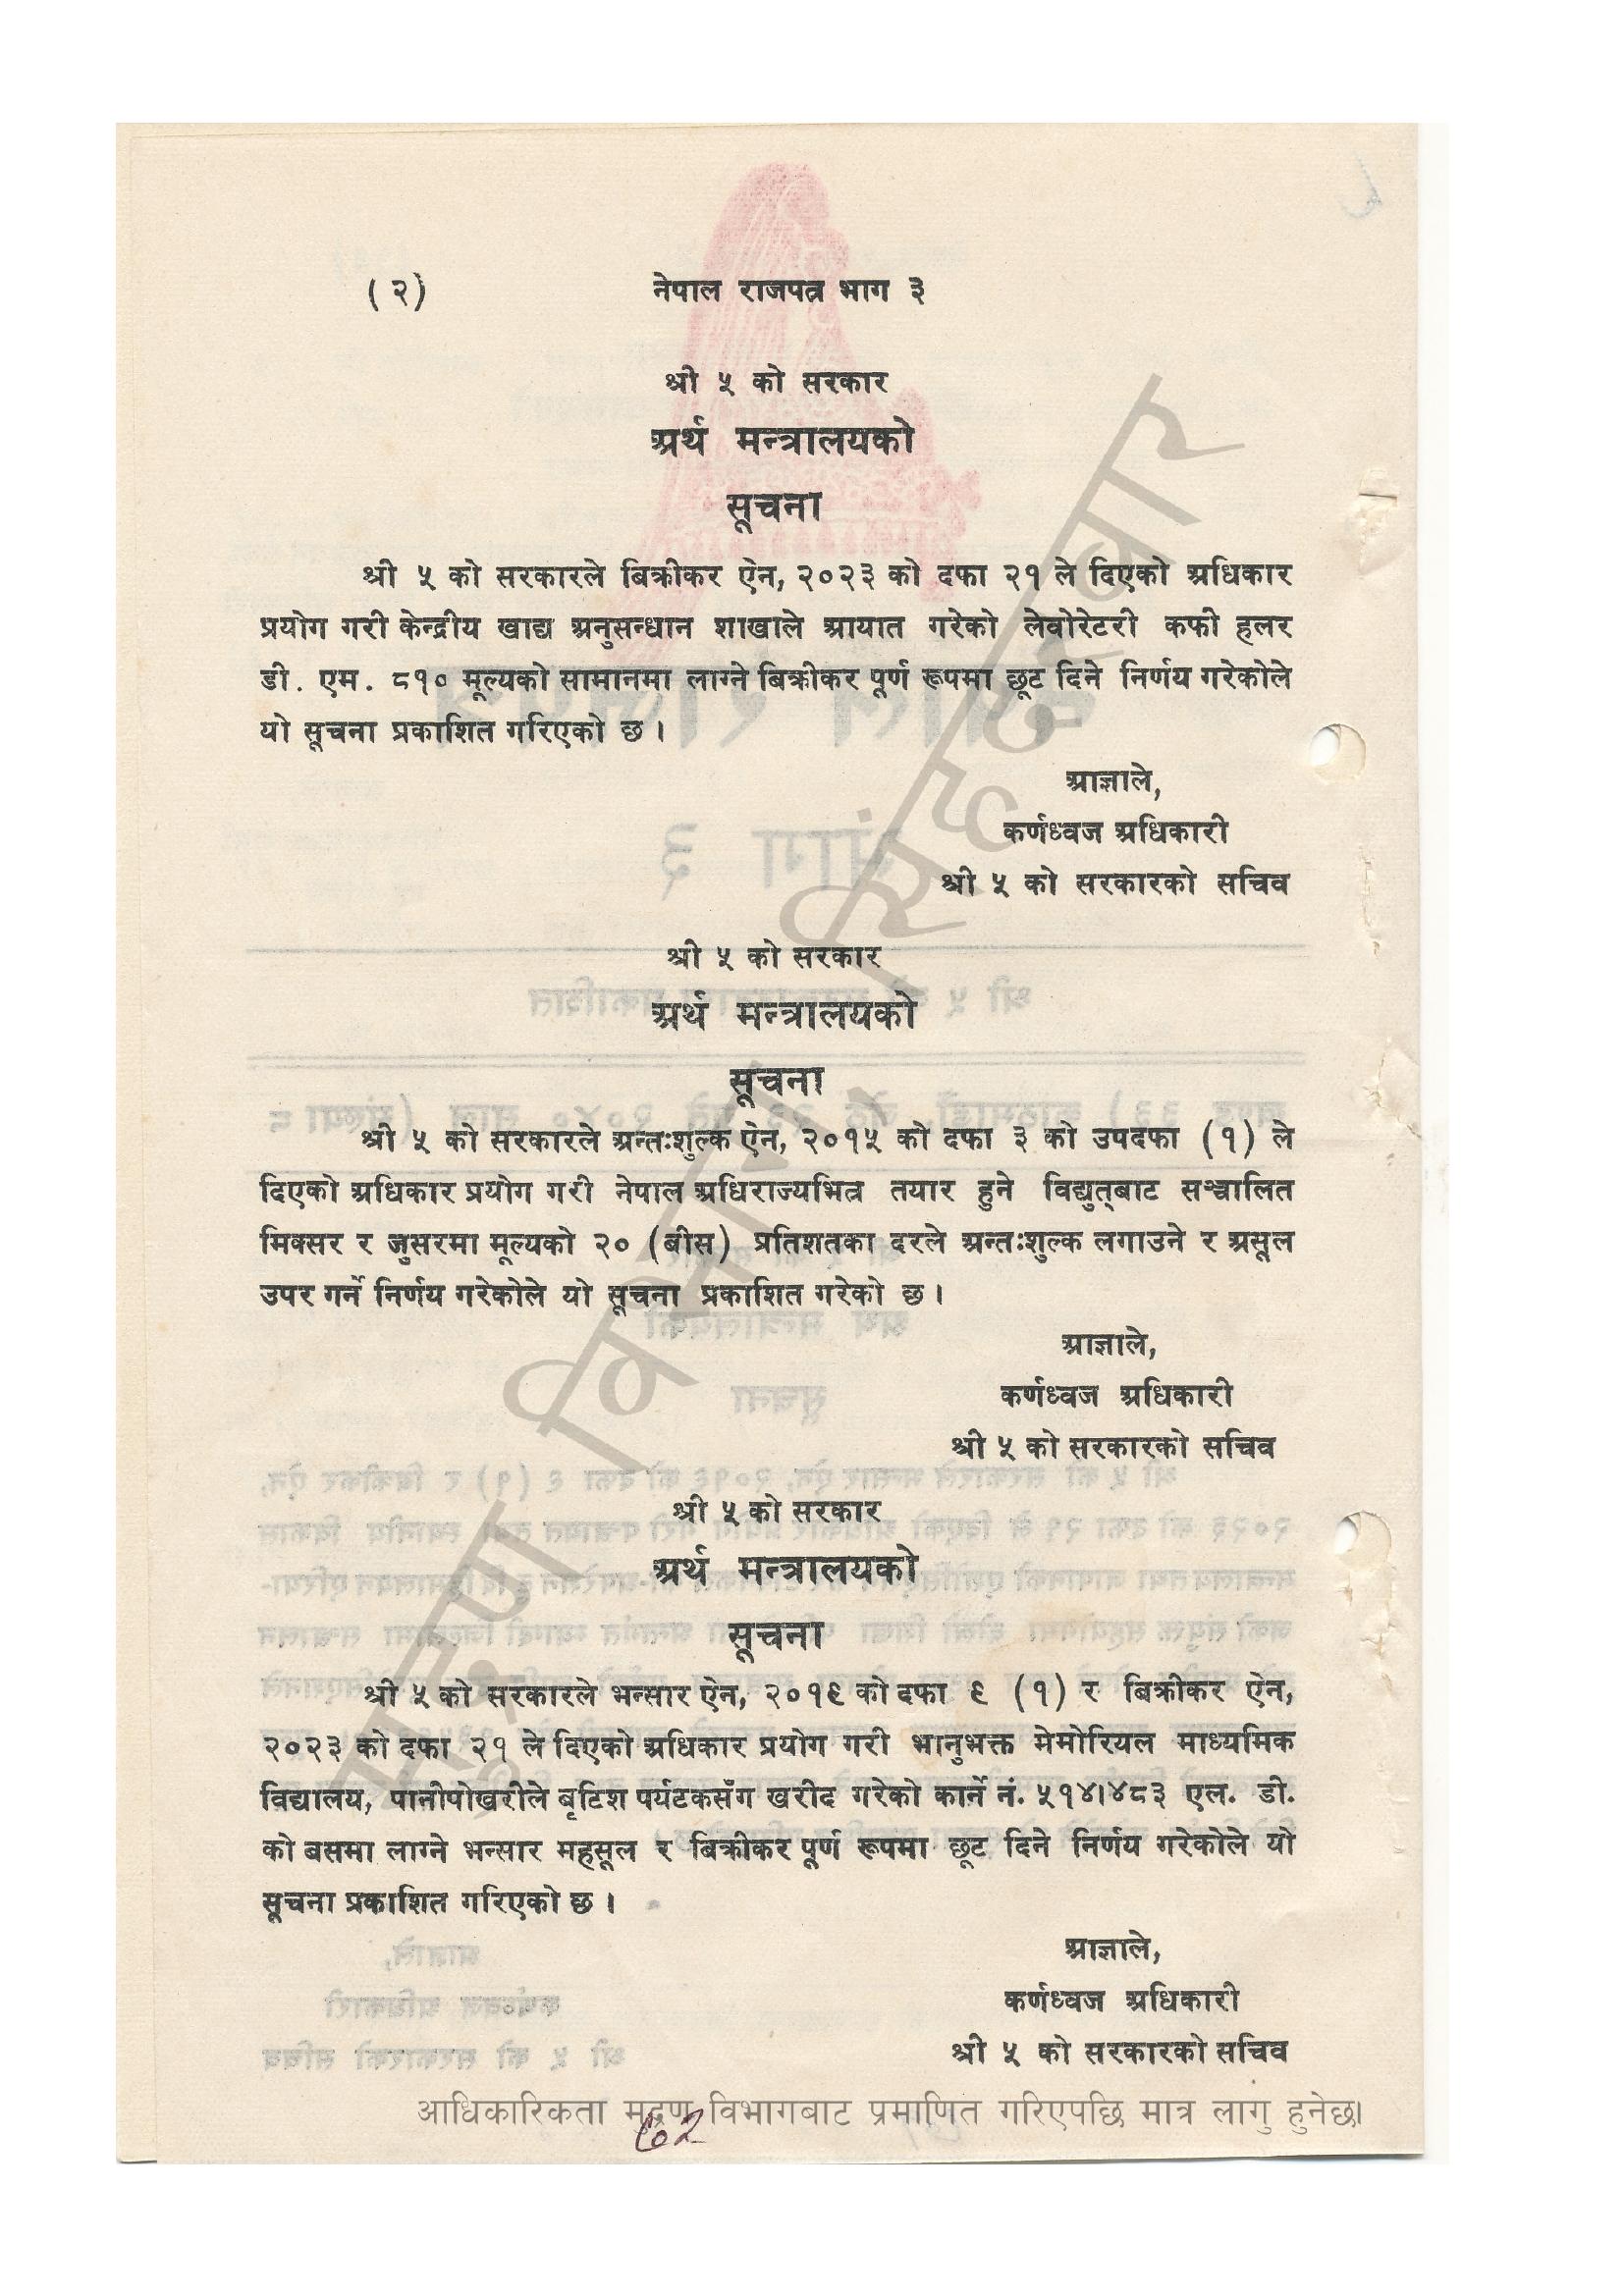 (२) नेपाल राजपत्र भाग ३
श्री ५ को सरकार
अर्थ मन्त्रालयको
सूचना
श्री ५ को सरकारले बिक्रीकर ऐन, २०२३ को दफा २१ ले दिएको अधिकार
प्रयोग गरी केन्द्रीय खाद्य अनुसन्धान शाखाले आयात गरेको लेवोरेटरी कफी हलर
डी. एम. ८१० मूल्यको सामानमा लाग्ने बिक्रीकर पूर्ण रूपमा छूट दिने निर्णय गरेकोले
यो सूचना प्रकाशित गरिएको छ ।
आज्ञाले,
कर्णध्वज अधिकारी
श्री ५ को सरकारको सचिव
श्री ५ को सरकार
अर्थ मन्त्रालयको
सूचना
श्री ५ को सरकारले अन्तःशुल्क ऐन, २०१५ को दफा ३ को उपदफा (१) ले
दिएको अधिकार प्रयोग गरी नेपाल अधिराज्यभित्र तयार हुने विद्युत्‌बाट सञ्चालित
मिक्सर र जुसरमा मूल्यको २० (बीस) प्रतिशतका दरले अन्तःशुल्क लगाउने र असूल
उपर गर्ने निर्णय गरेकोले यो सूचना प्रकाशित गरेको छ ।
आज्ञाले,
कर्णध्वज अधिकारी
श्री ५ को सरकारको सचिव
श्री ५ को सरकार
अर्थ मन्त्रालयको
सूचना
श्री ५ को सरकारले भन्सार ऐन, २०१९ को दफा ९ (१) र बिक्रीकर ऐन,
२०२३ को दफा २१ ले दिएको अधिकार प्रयोग गरी भानुभक्त मेमोरियल माध्यमिक
विद्यालय, पानीपोखरीले बृटिश पर्यटकसँग खरीद गरेको कार्ने नं. ५१४।४८३ एल. डी.
को बसमा लाग्ने भन्सार महसूल र बिक्रीकर पूर्ण रूपमा छूट दिने निर्णय गरेकोले यो
सूचना प्रकाशित गरिएको छ ।
आज्ञाले,
कर्णध्वज अधिकारी
श्री ५ को सरकारको सचिव
आधिकारिकता मुद्रण विभागबाट प्रमाणित गरिएपछि मात्र लागु हुनेछ।